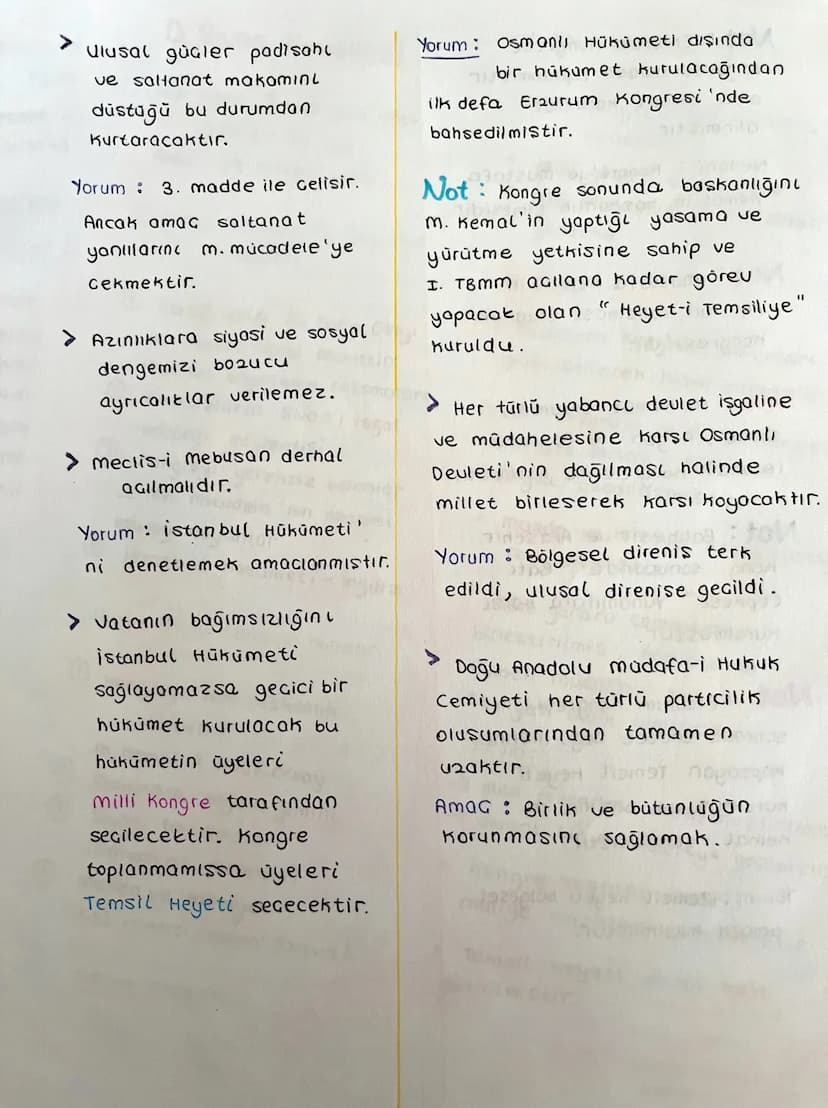 > Ulusal güçler padişahı
ve saltanat makamını
düştüğü bu durumdan
kurtaracaktır.
Yorum : 3. madde ile çelişir.
Ancak amaç saltanat
yanlılarını M. mücadele'ye
çekmektir.
> Azınlıklara siyasi ve sosyal
dengemizi bozucu
ayrıcalıklar verilemez.
> Meclis-i Mebusan derhal
açılmalıdır.
Yorum : İstanbul Hükümeti'
ni denetlemek amaçlanmıştır.
> Vatanın bağımsızlığını
İstanbul Hükümeti
sağlayamazsa geçici bir
hükümet kurulacak bu
hükümetin üyeleri
Milli Kongre tarafından
seçilecektir. Kongre
toplanmamışsa üyeleri
Temsil Heyeti seçecektir.
Yorum : Osmanlı Hükümeti dışında
bir hükümet kurulacağından
ilk defa Erzurum Kongresi'nde
bahsedilmiştir.
Not : Kongre sonunda başkanlığını
M. Kemal'in yaptığı yasama ve
yürütme yetkisine sahip ve
I. TBMM açılana kadar görev
yapacak olan "Heyet-i Temsiliye"
kuruldu.
> Her türlü yabancı devlet işgaline
ve müdahelesine karşı Osmanlı
Devleti'nin dağılması halinde
millet birleşerek karşı koyacaktır.
Yorum : Bölgesel direniş terk
edildi, ulusal direnişe geçildi.
> Doğu Anadolu Müdafa-i Hukuk
Cemiyeti her türlü partıcilik
oluşumlarından tamamen
uzaktır.
Amaç : Birlik ve bütünlüğün
korunmasını sağlamak.